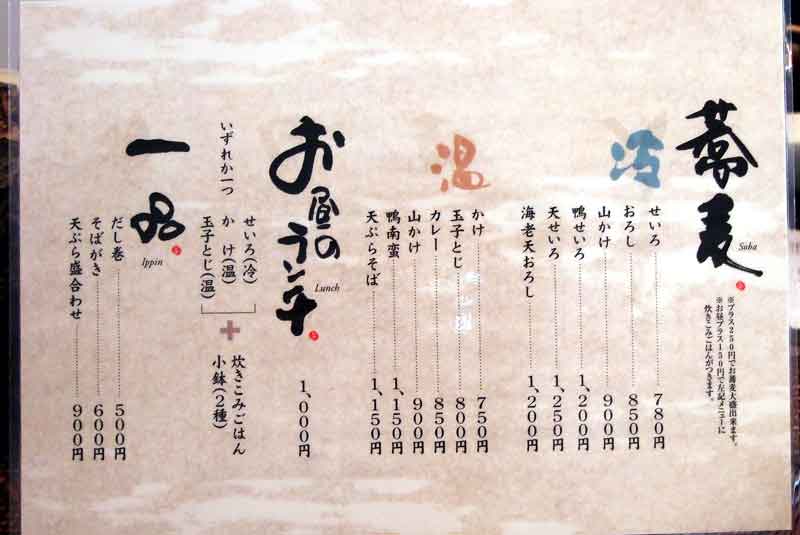 蕎麦
Soba
※プラス250円でお蕎麦大盛出来ます。
※お昼プラス150円で左記メニューに
炊きこみごはんがつきます。
冷
せいろ 780円
おろし 850円
山かけ 900円
鴨せいろ 1,200円
天せいろ 1,250円
海老天おろし 1,200円
温
かけ 750円
玉子とじ 800円
カレー 850円
山かけ 900円
鴨南蛮 1,150円
天ぷらそば 1,150円
お昼のランチ
Lunch
1,000円
いずれか一つ
せいろ(冷)
かけ(温)
玉子とじ(温)
+
炊きこみごはん
小鉢(2種)
一品
Ippin
だし巻 500円
そばがき 600円
天ぷら盛合わせ 900円